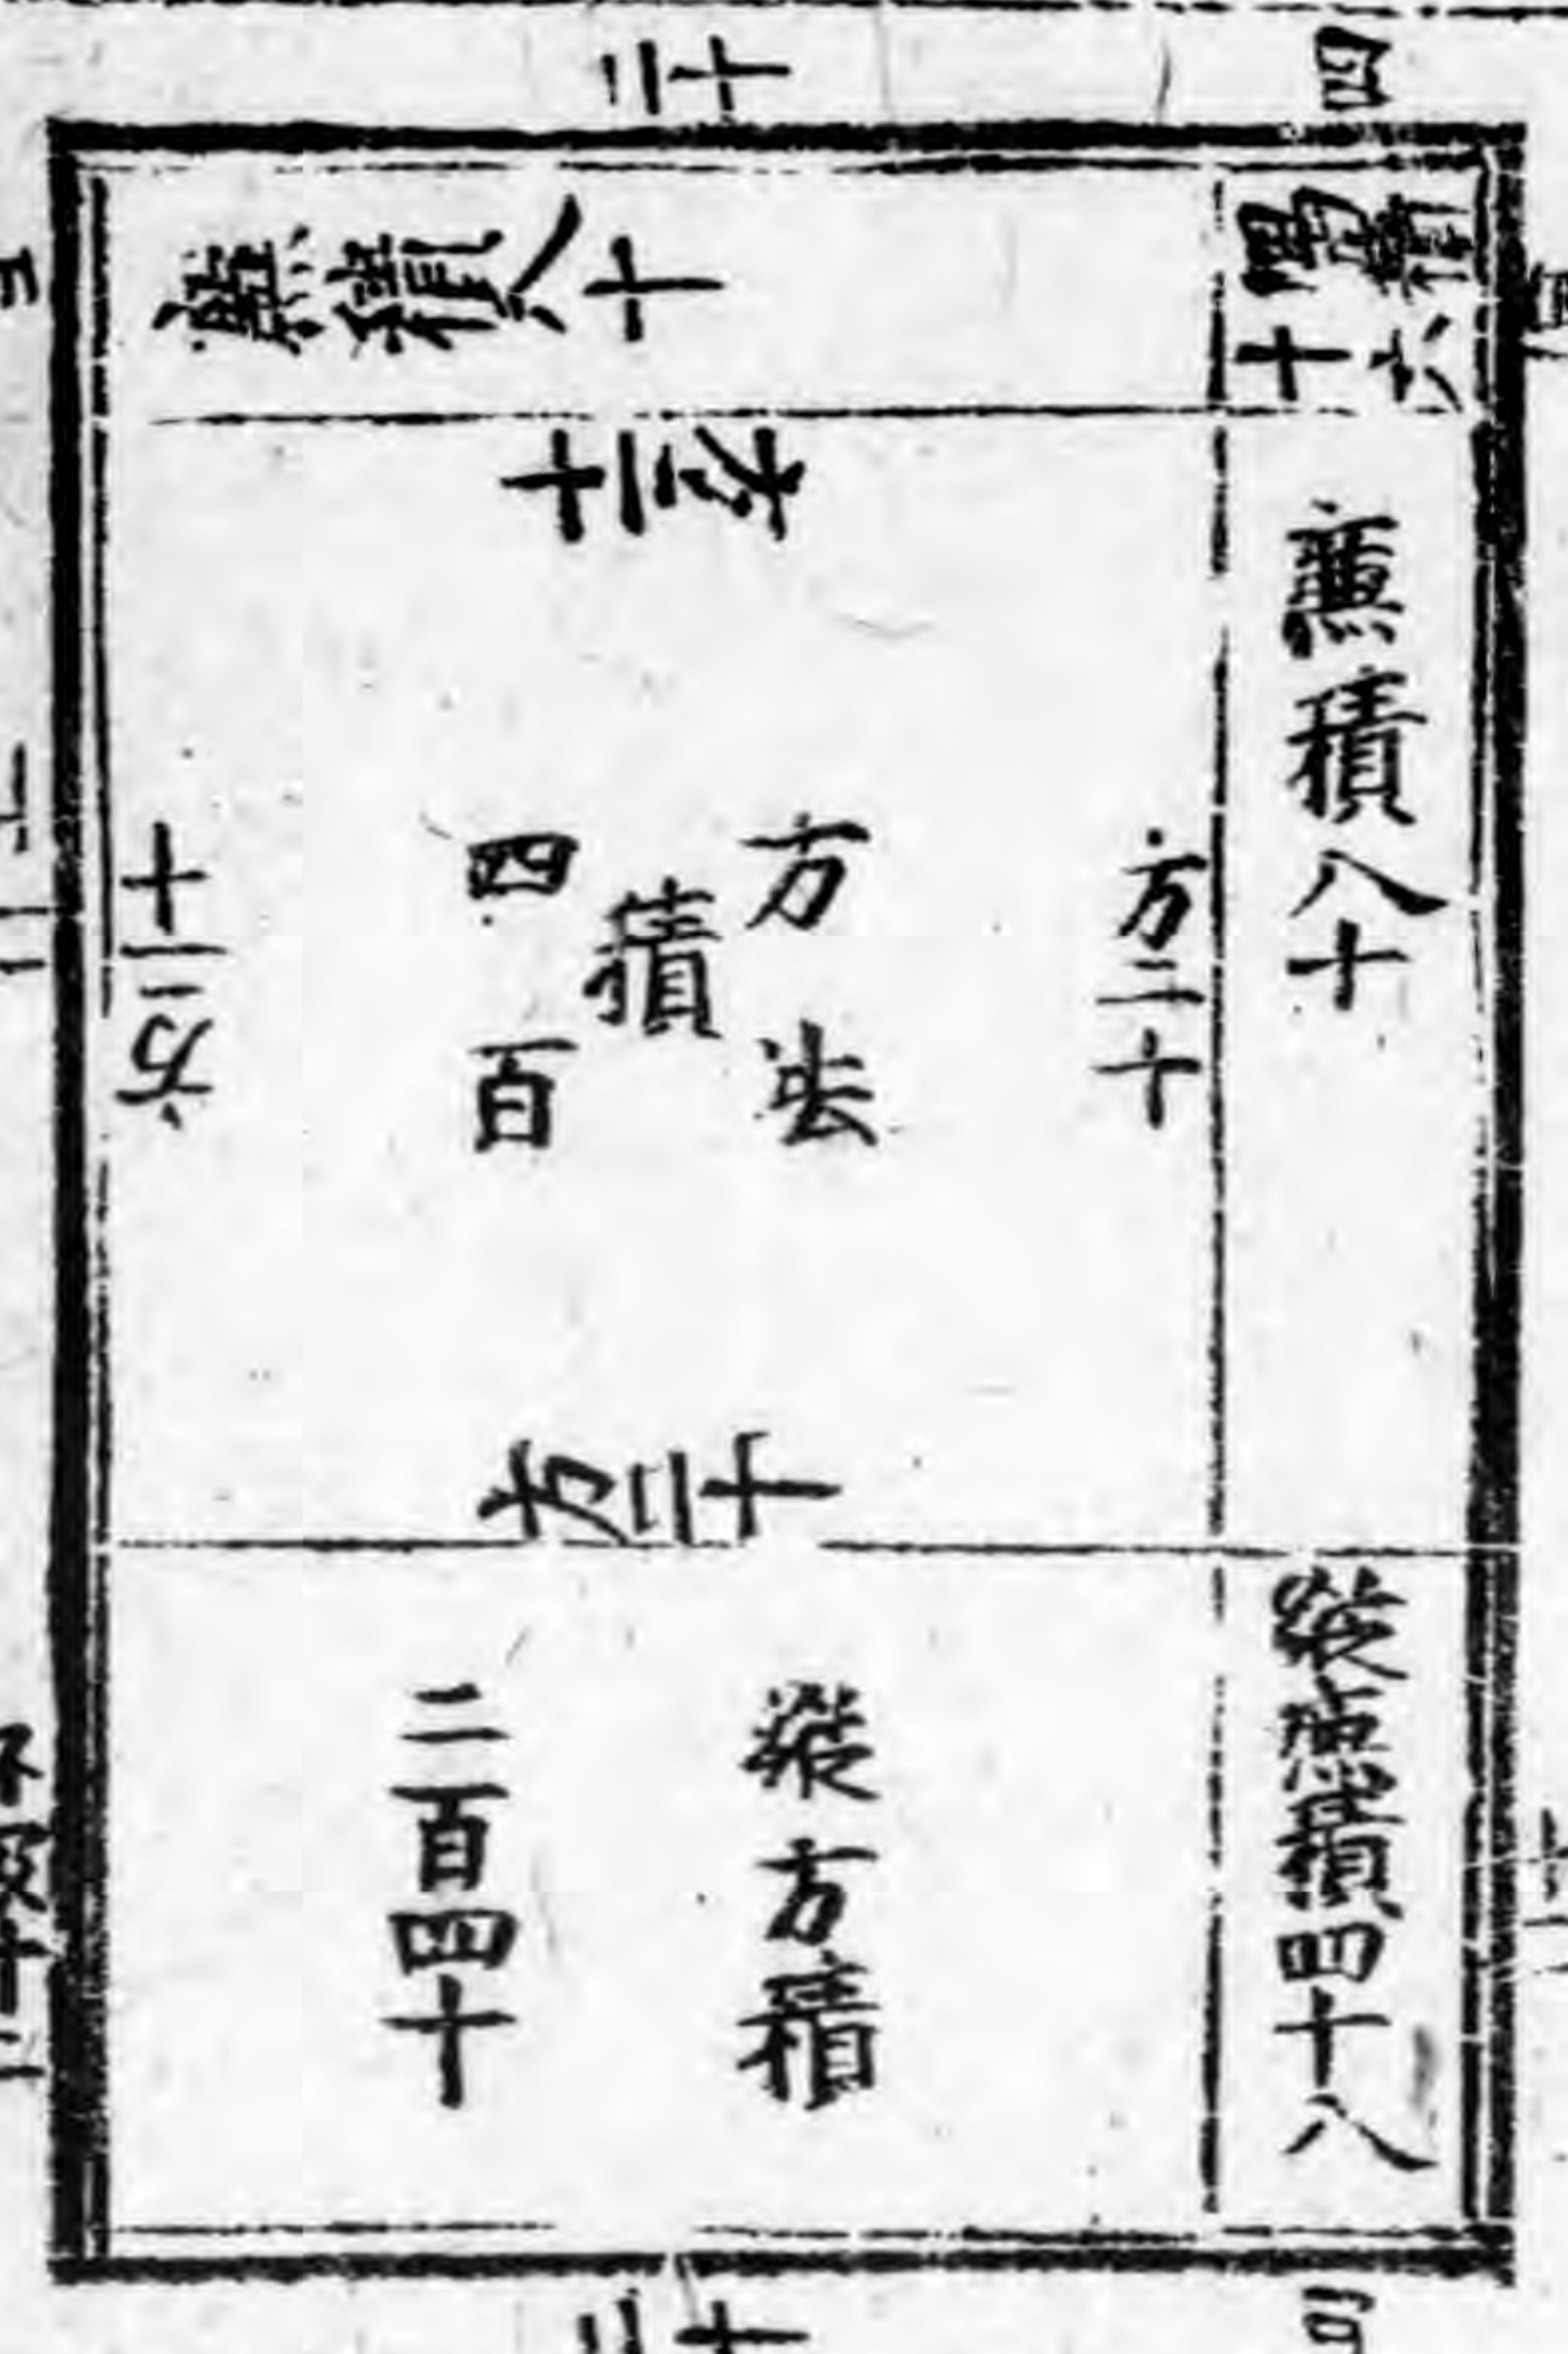 二十
四
隅積
十六
廉積八十
方二十
廉積八十
方二十
方法
積
四百
方二十
方二十
縱廉積四十八
縱方積
二百四十
二十